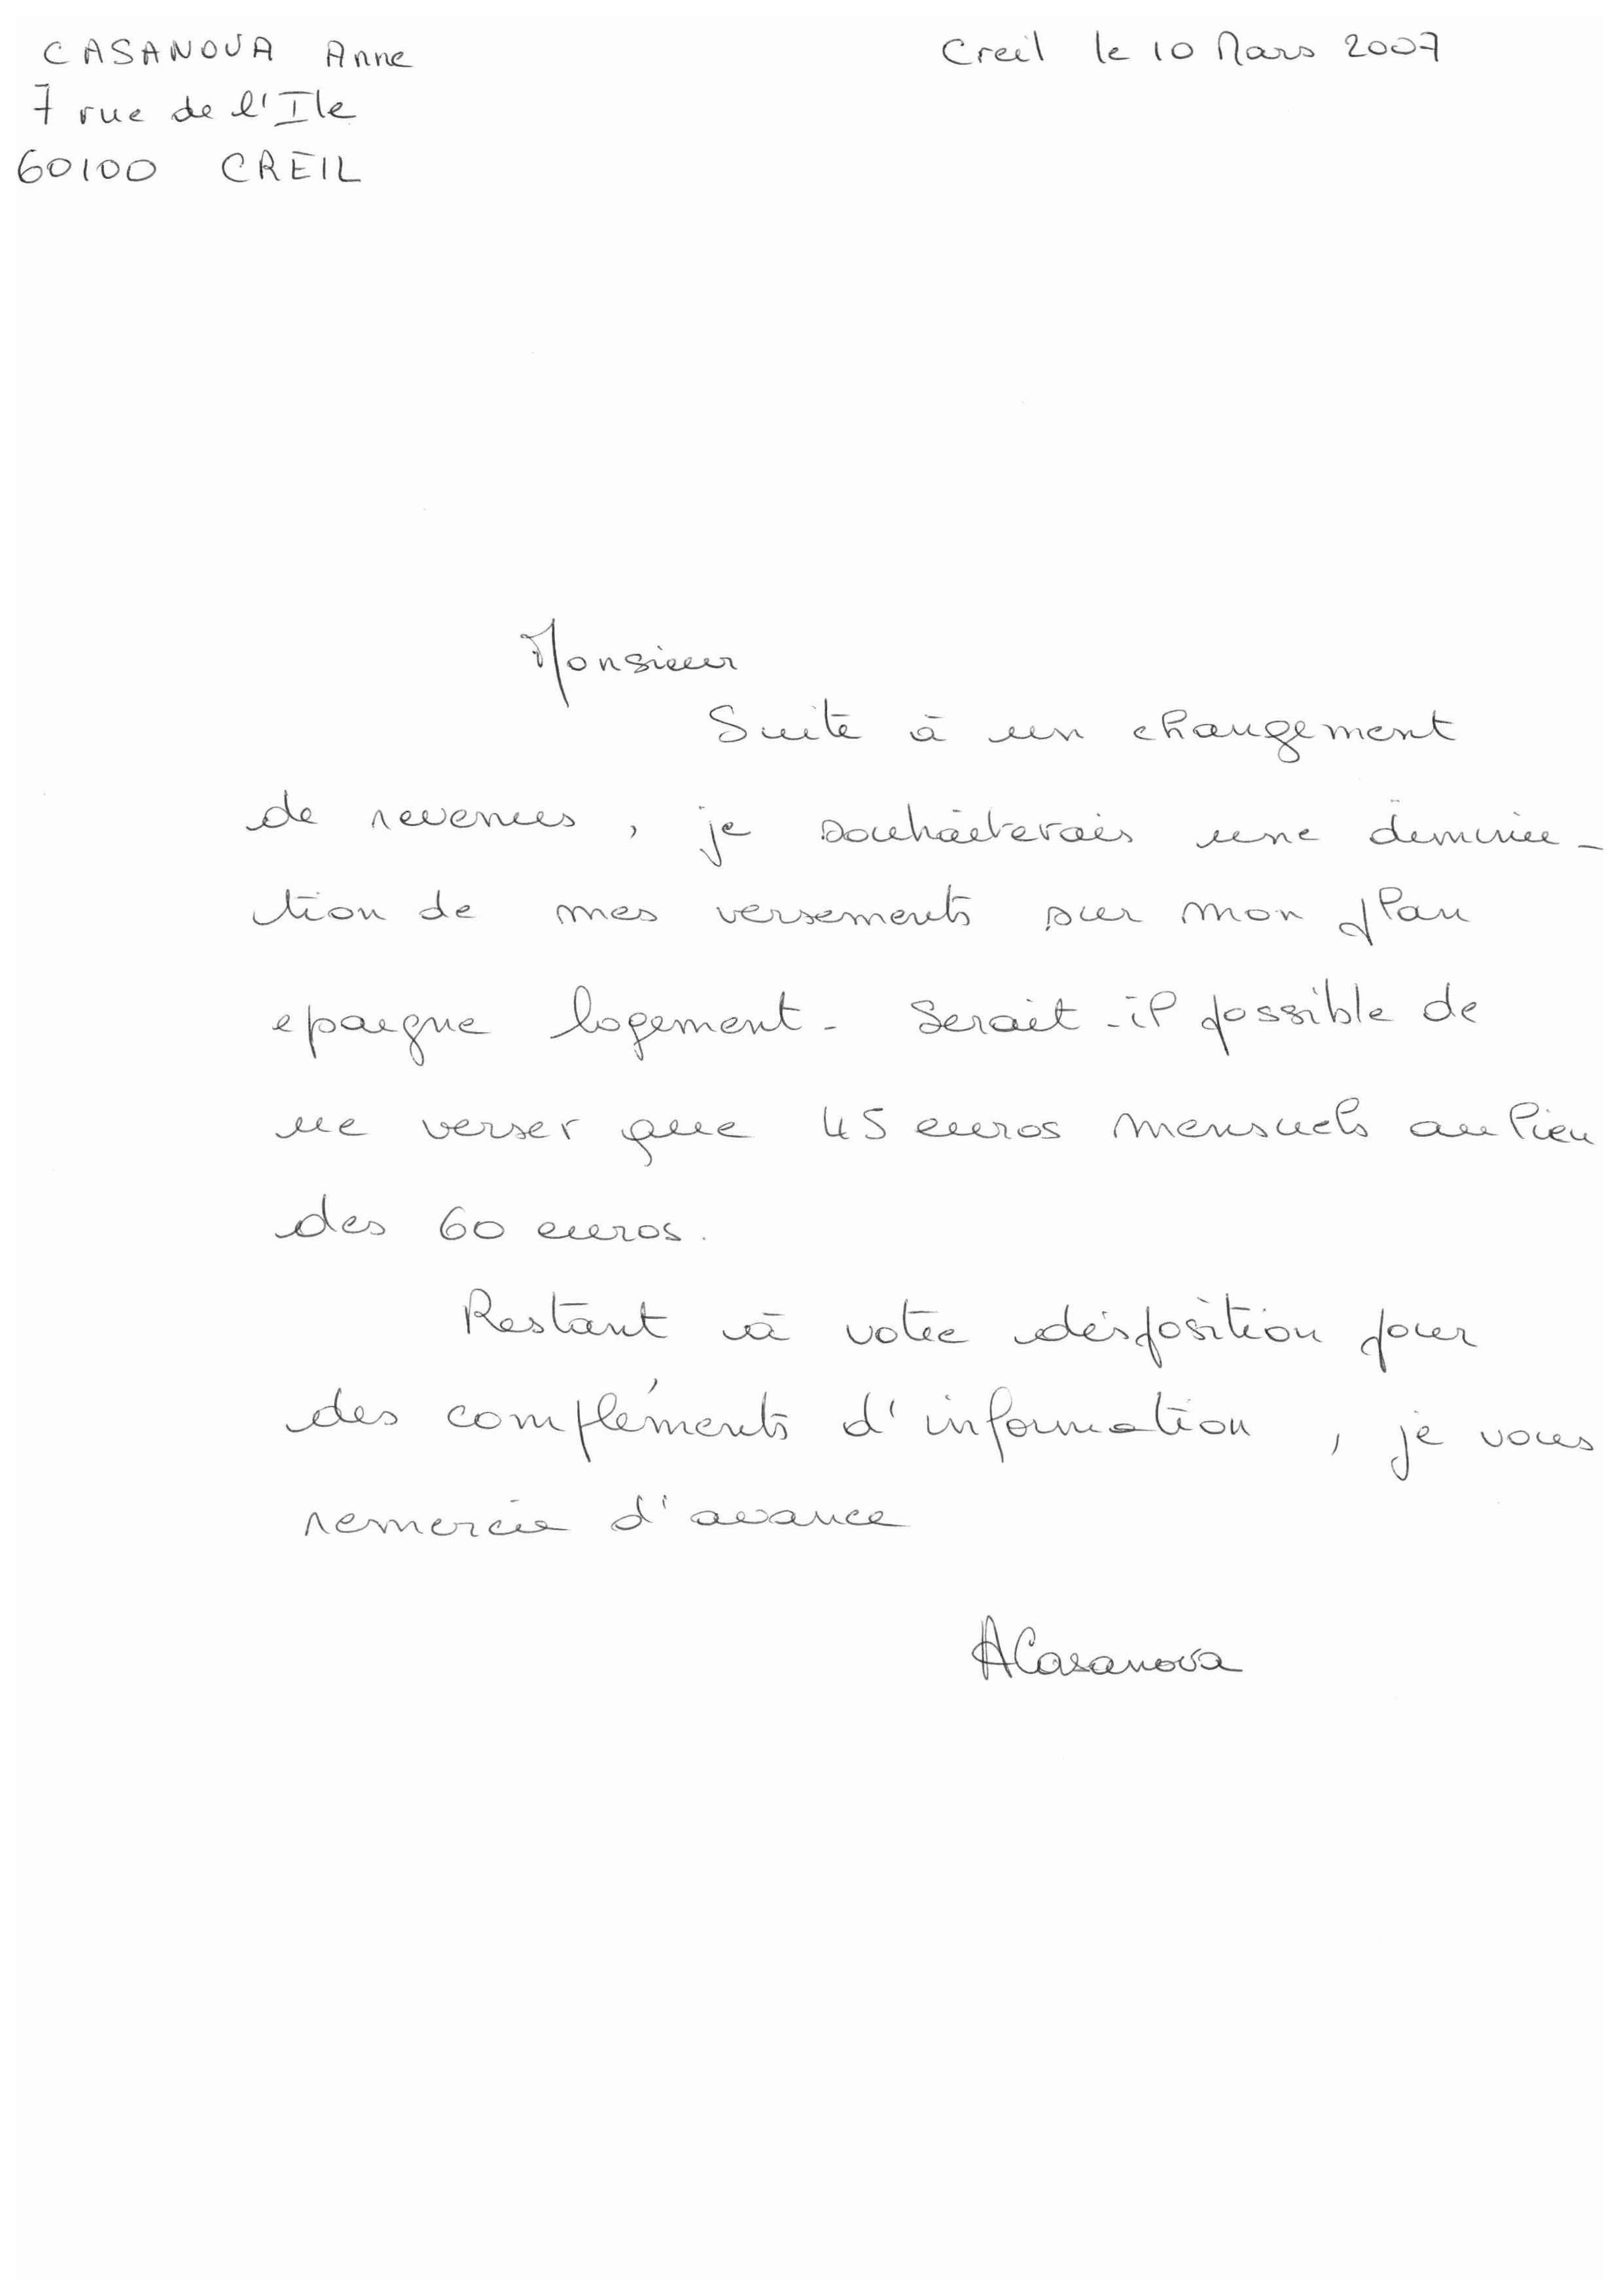 CASANOVA Anne
Creil le 10 Mars 2007
7 rue de l'Ile
60100 CREIL
Monsieur
Suite à un changement
de revenues, je souhaiterais une diminu-
tion de mes versements sur mon plan
epargne logement. Serait-il possible de
ne verser que 45 euros mensuels au lieu
des 60 euros.
Restant à votre disposition pour
des compléments d'information, je vous
remercie d'avance
ACasanova